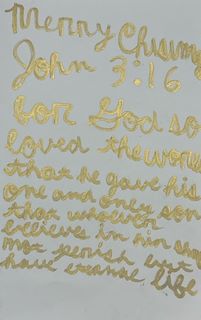 Merry Chrism
John 3:16
for God so
loved the worl
that he gave his
one and only son
that whoever
believes in him sha
not perish but
have eternal life